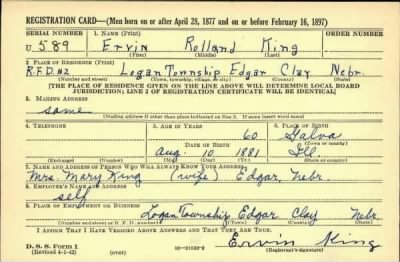 REGISTRATION CARD—(Men born on or after April 28, 1877 and on or before February 16, 1897)
SERIAL NUMBER 1. NAME (Print) ORDER NUMBER
U 589 Ervin Rolland King
(First) (Middle) (Last)
2. PLACE OF RESIDENCE (Print)
R.F.D. #2 Logan Township Edgar Clay Nebr.
(Number and street) (Town, township, village, or city) (County) (State)
[THE PLACE OF RESIDENCE GIVEN ON THE LINE ABOVE WILL DETERMINE LOCAL BOARD
JURISDICTION; LINE 2 OF REGISTRATION CERTIFICATE WILL BE IDENTICAL]
3. MAILING ADDRESS
same
[Mailing address if other than place indicated on line 2. If same insert word same]
4. TELEPHONE 5. AGE IN YEARS 6. PLACE OF BIRTH
60 Galva
DATE OF BIRTH (Town or county)
Aug. 10 1881 Ill.
(Exchange) (Number) (Mo.) (Day) (Yr.) (State or country)
7. NAME AND ADDRESS OF PERSON WHO WILL ALWAYS KNOW YOUR ADDRESS
Mrs. Mary King (wife) Edgar, Nebr.
8. EMPLOYER'S NAME AND ADDRESS
self
9. PLACE OF EMPLOYMENT OR BUSINESS
Logan Township Edgar Clay Nebr.
(Number and street or R. F. D. number) (Town) (County) (State)
I AFFIRM THAT I HAVE VERIFIED ABOVE ANSWERS AND THAT THEY ARE TRUE.
D. S. S. Form 1
(Revised 4-1-42) (over)
Ervin King